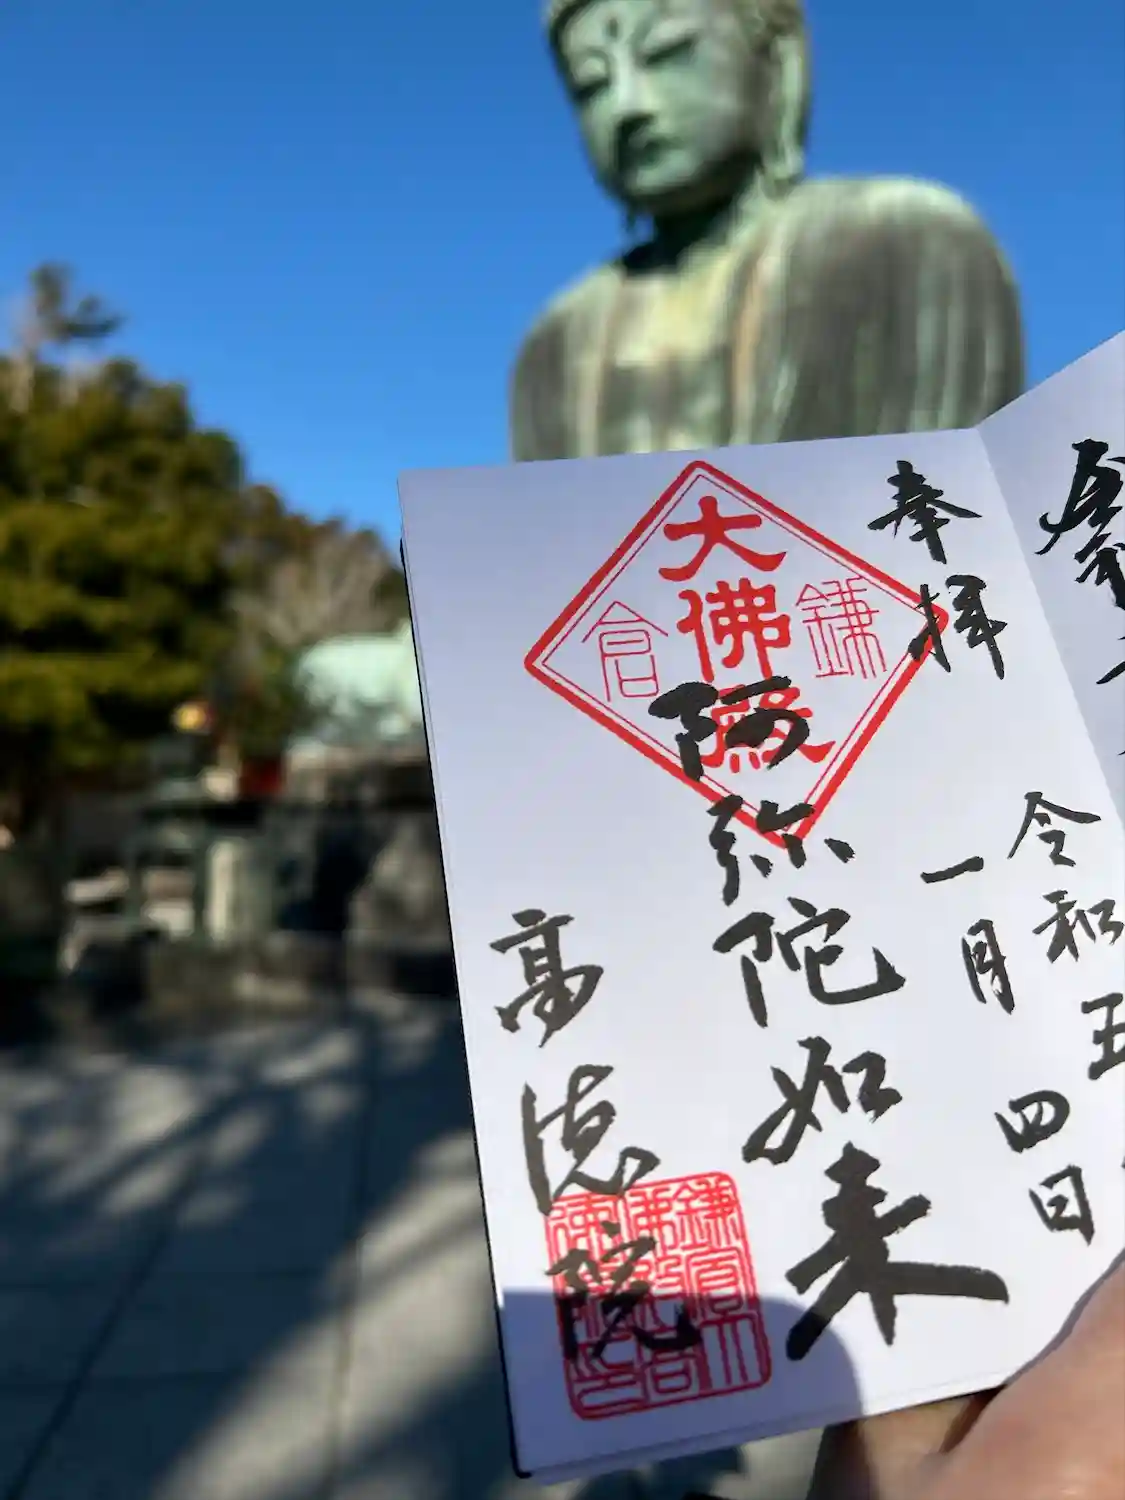 奉拝
令和五
一月四日
鎌倉
大佛殿
阿弥陀如来
高徳院